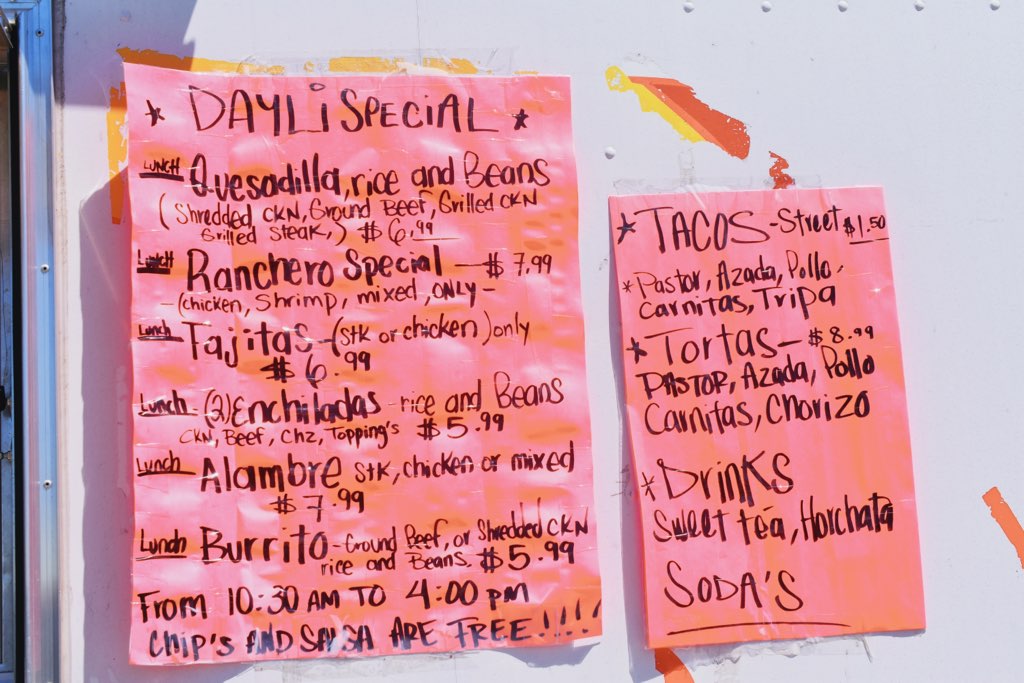 * DAYLi SPECiAL *
LUNCH Quesadilla, rice and Beans
(Shredded CKN, Ground Beef, Grilled CKN
Grilled Steak,) $6.99
Lunch Ranchero Special - $7.99
- (chicken, Shrimp, mixed, ONLY -
Lunch Fajitas - (Stk or chicken) only
$6.99
Lunch (2) Enchiladas - rice and Beans
CKN, Beef, Chz, Topping's $5.99
Lunch Alambre Stk, chicken or mixed
$7.99
Lunch Burrito - Ground Beef, or Shredded CKN
rice and Beans. $5.99
From 10:30 AM TO 4:00 PM
Chip's AND SALSA ARE FREE!!!!
* TACOS - Street $1.50
* Pastor, Azada, Pollo,
Carnitas, Tripa
* Tortas - $8.99
PASTOR, Azada, Pollo
Carnitas, Chorizo
* DrinKS
Sweet tea, Horchata
SODA'S